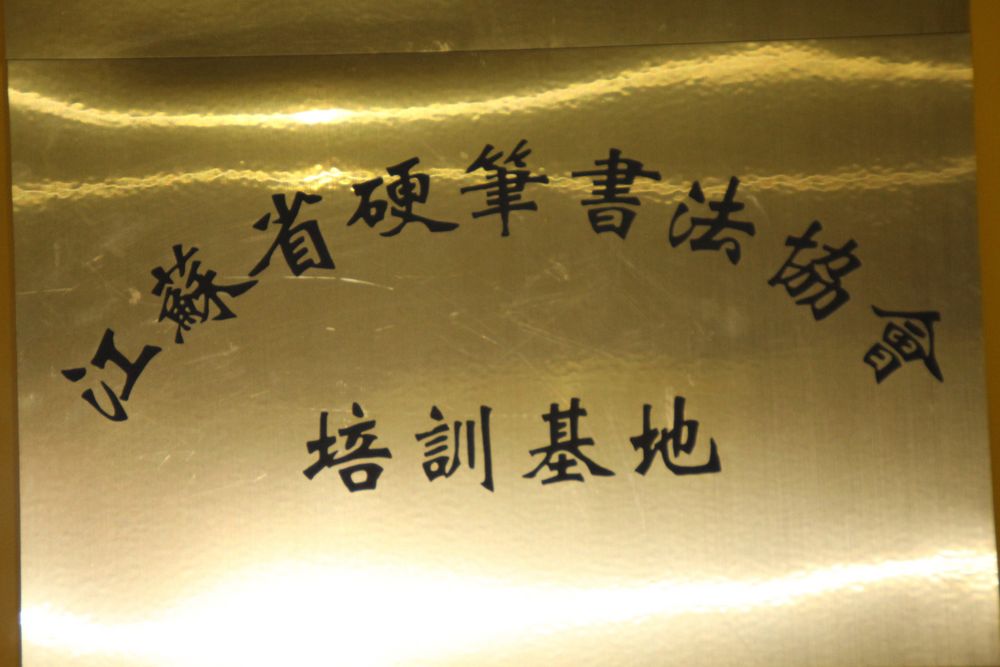 江蘇省硬筆書法協會
培訓基地